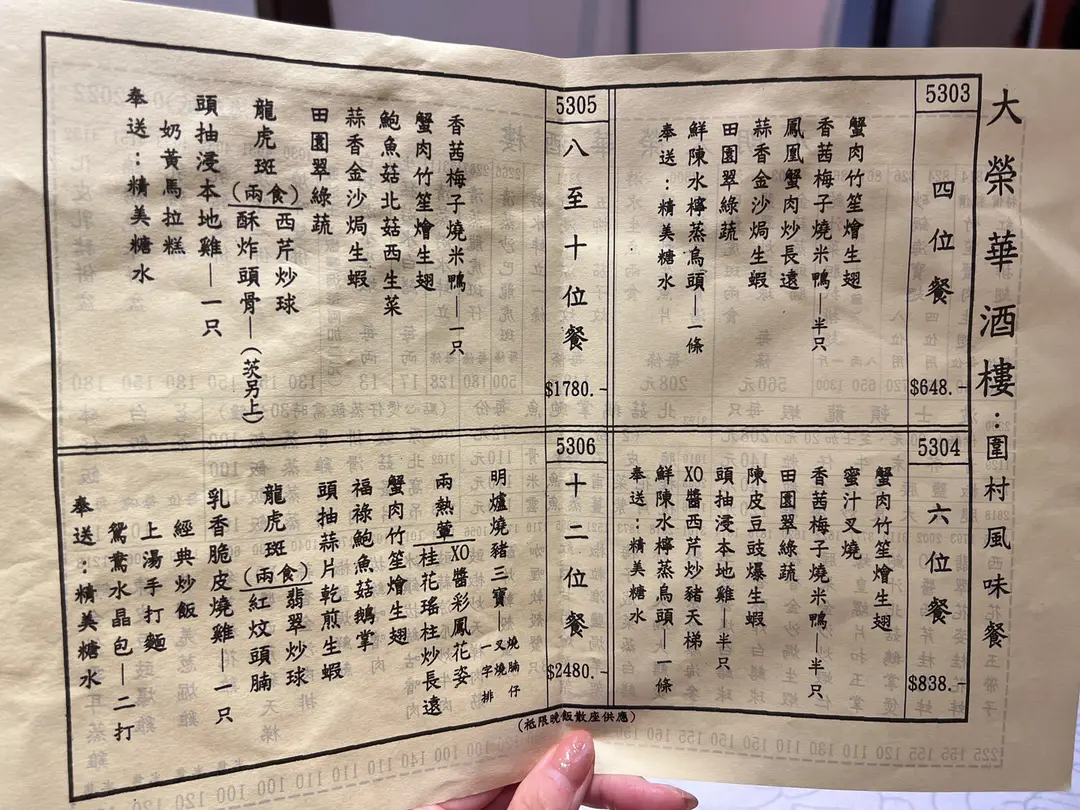 大榮華酒樓:圍村風味餐
5303
四位餐
$648.-
蟹肉竹笙燴生翅
香茜梅子燒米鴨—半只
鳳凰蟹肉炒長遠
蒜香金沙焗生蝦
田園翠綠蔬
鮮陳水檸蒸烏頭—一條
奉送:精美糖水
5304
六位餐
$838.-
蟹肉竹笙燴生翅
蜜汁叉燒
香茜梅子燒米鴨—半只
田園翠綠蔬
陳皮豆豉爆生蝦
頭抽浸本地雞—半只
XO醬西芹炒豬天梯
鮮陳水檸蒸烏頭—一條
奉送:精美糖水
5305
八至十位餐
$1780.-
香茜梅子燒米鴨—一只
蟹肉竹笙燴生翅
鮑魚菇北菇西生菜
蒜香金沙焗生蝦
田園翠綠蔬
龍虎斑(兩食)
西芹炒球
酥炸頭骨—(茨另上)
頭抽浸本地雞—一只
奶黃馬拉糕
奉送:精美糖水
5306
十二位餐
$2480.-
明爐燒豬三寶—
燒腩仔
叉燒
一字排
兩熱葷
XO醬彩鳳花姿
桂花瑤柱炒長遠
蟹肉竹笙燴生翅
福祿鮑魚菇鵝掌
頭抽蒜片乾煎生蝦
龍虎斑(兩食)
翡翠炒球
紅炆頭腩
乳香脆皮燒雞—一只
經典炒飯
上湯手打麵
鴛鴦水晶包—二打
奉送:精美糖水
(祗限晚飯散座供應)